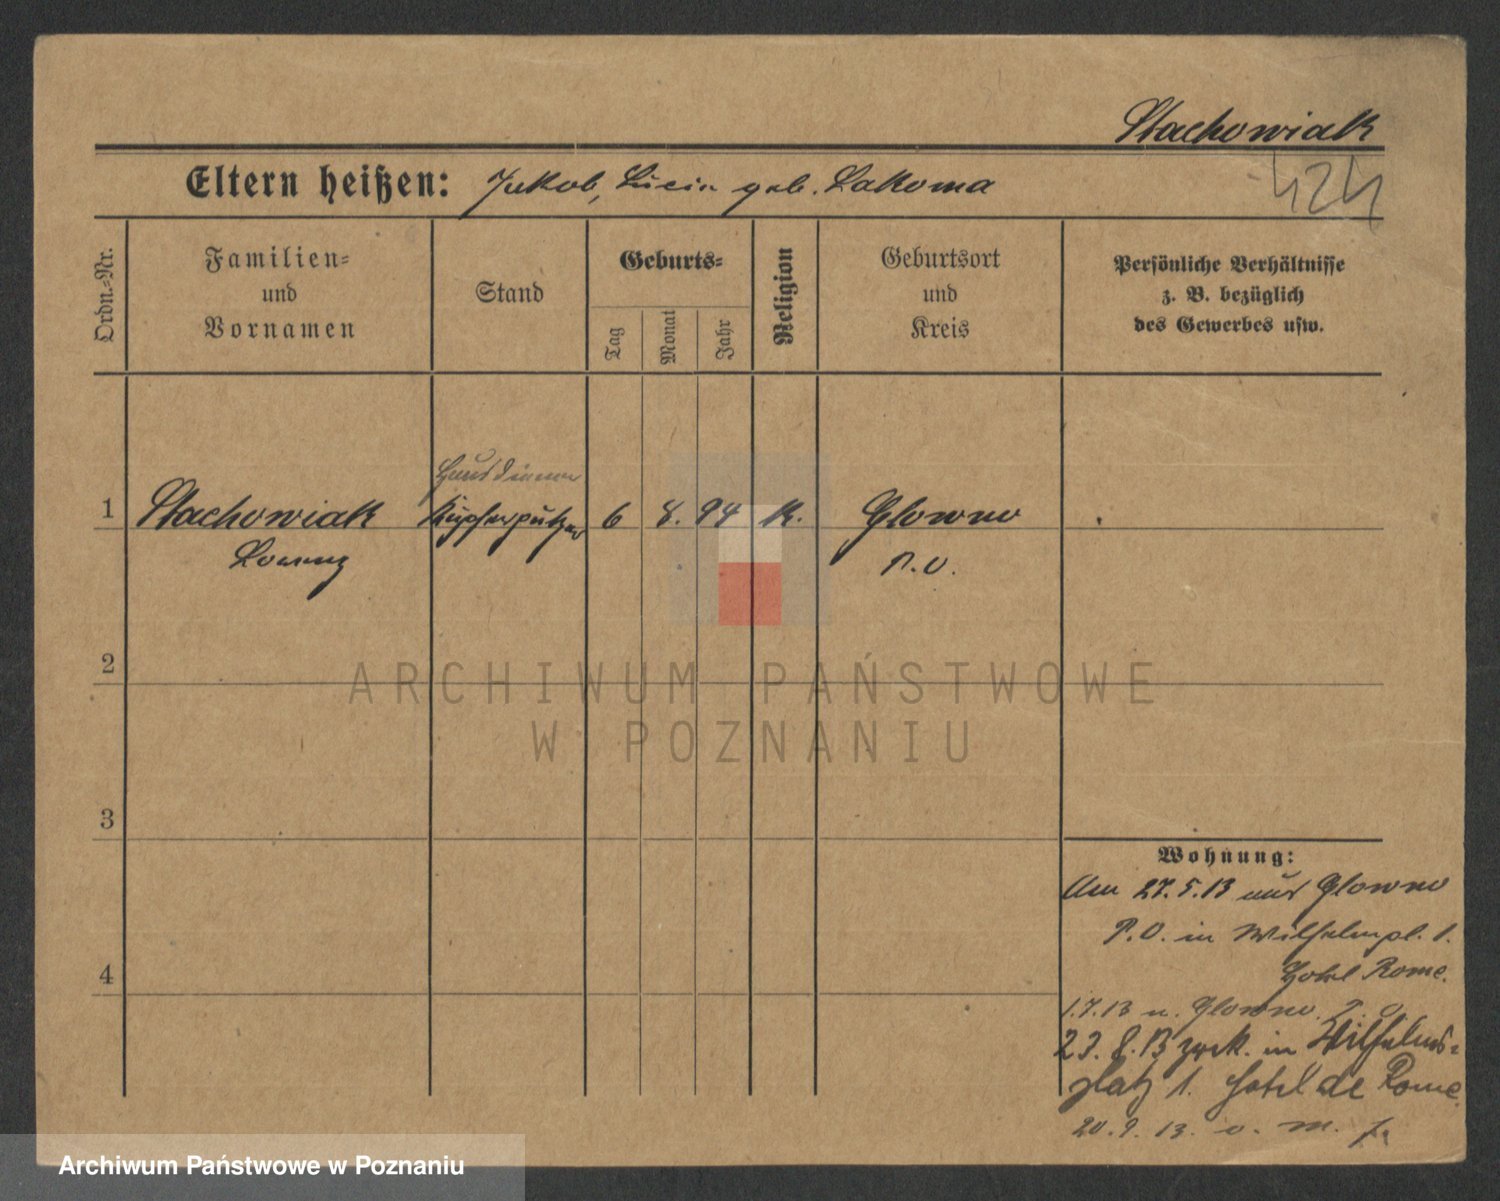 Stachowiak
424
Eltern heißen: Jakob, Lucia geb. Lakoma
Ordn.=Nr.
Familien=
und
Vornamen
Stand
Geburts=
Tag
Monat
Jahr
Religion
Geburtsort
und
Kreis
Persönliche Verhältnisse
z. B. bezüglich
des Gewerbes usw.
Hausdiener
1 Stachowiak Kupferputzer 6 8. 94 K. Glowno
Lorenz P. O.
2
ARCHIWUM PAŃSTWOWE
W POZNANIU
3
Wohnung:
Am 27.5.13 aus Glowno
P.O. in Wilhelmpl. 1.
Hotel Rome.
1.7.13 n. Glowno P. O.
4
23.8.13 zurk. in Wilhelms-
platz 1. Hotel de Rome.
20.9.13. v. M.
Archiwum Państwowe w Poznaniu